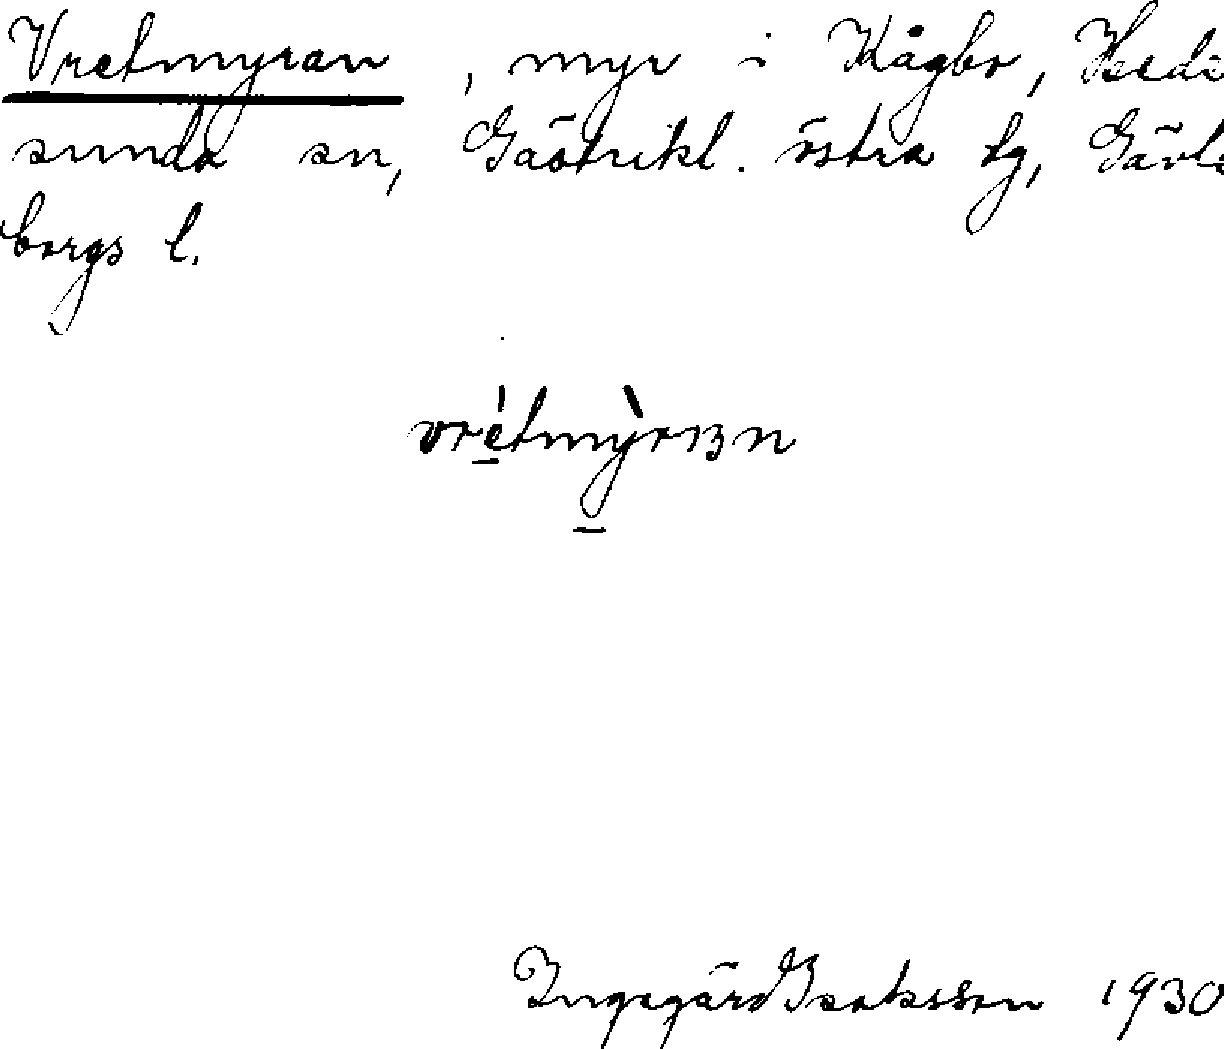 Vretmyran, myr i Kågbo, Hede
sunda sn, Gästrikl. östra tg, Gävle
borgs l.
vrétmỳrɜn
Ingegärd Isaksson 1930